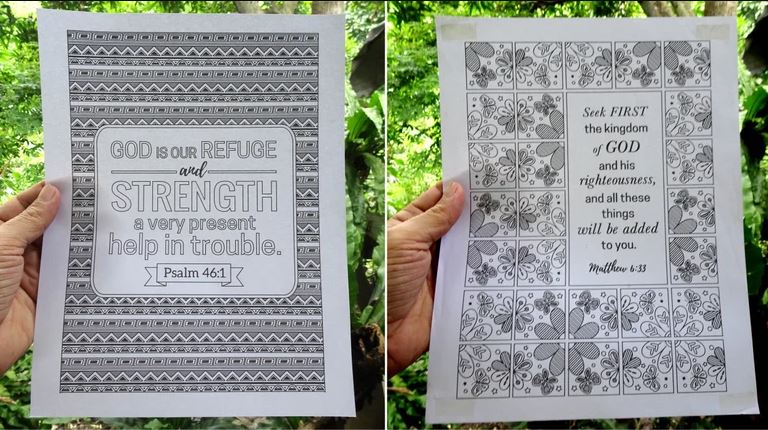 GOD IS OUR REFUGE
and
STRENGTH
a very present
help in trouble.
Psalm 46:1
Seek FIRST
the kingdom
of GOD
and his
righteousness,
and all these
things
will be added
to you.
Matthew 6:33